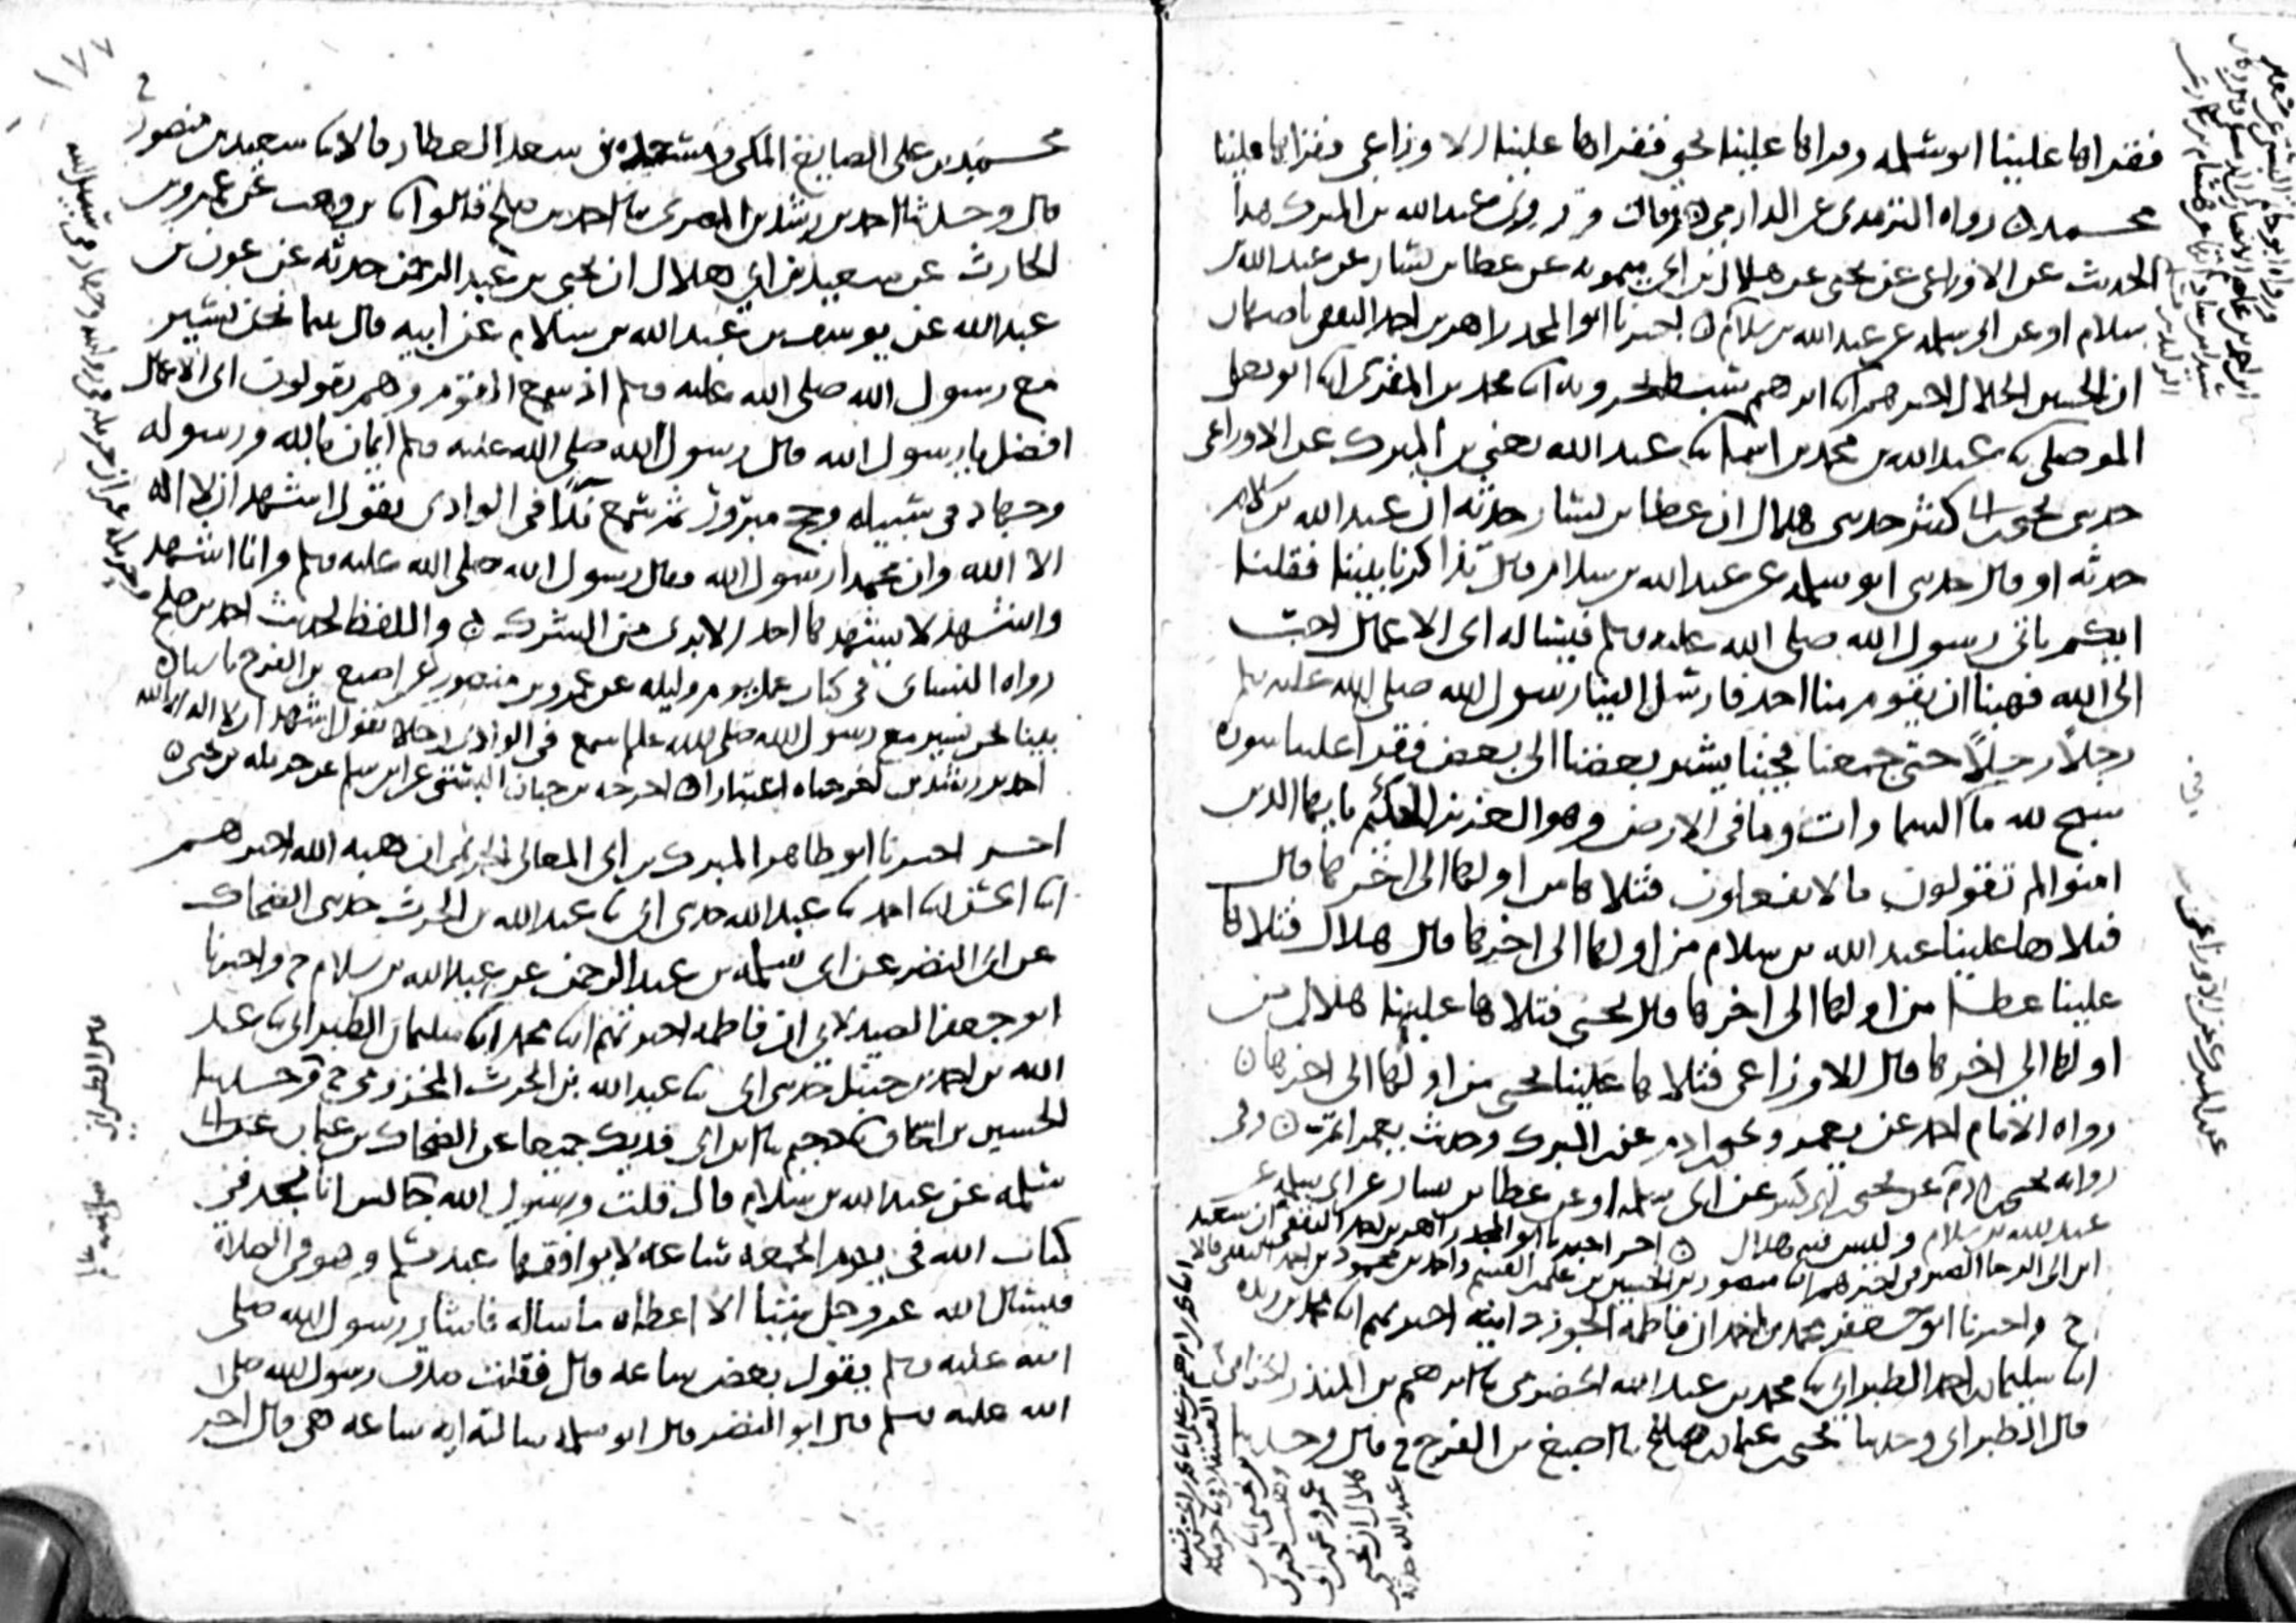 فقراها علينا ابو سلمه وقراها علينا يحيى فقراها علينا الاوزاعي فقراها علينا
محمد رواه الترمذي عن الدارمي وقال وقد روى عبد الله بن المبرك هذا
الحديث عن الاوزاعي عن يحيى عن هلال بن ابي ميمونه عن عطا بن يسار عن عبد الله بن
سلام او عن ابي سلمه عن عبد الله بن سلام اخبرنا ابو المجد زاهر بن احمد الثقفي باصبهان
ان الحسين الخلال اخبرهم ابنا ابرهيم سبط بحرويه ابنا محمد بن المقرى ابنا ابو يعلى
الموصلي ثنا عبد الله بن محمد بن اسما ثنا عبد الله يعني بن المبرك عن الاوزاعي
حدثني يحيى بن ابي كثير حدثني هلال ان عطا بن يسار حدثه ان عبد الله بن سلام
حدثه او قال حدثني ابو سلمه عن عبد الله بن سلام قال تذاكرنا بيننا فقلنا
ايكم ياتي رسول الله صلى الله عليه وسلم فيساله اي الاعمال احب
الى الله فهبنا ان يقوم منا احد فارسل الينا رسول الله صلى الله عليه وسلم
رجلا رجلا حتى جمعنا فجينا يشير بعضنا الى بعض فقرا علينا سوره
سبح لله ما السماوات وما في الارض وهو العزيز الحكيم يايها الذين
امنوا لم تقولون ما لا تفعلون فتلاها من اولها الى اخرها قال
فتلاها علينا عبد الله بن سلام من اولها الى اخرها قال هلال فتلاها
علينا عطا من اولها الى اخرها قال يحيى فتلاها علينا هلال من
اولها الى اخرها قال الاوزاعي فتلاها علينا يحيى من اولها الى اخرها
رواه الامام احمد عن يعمر وعن يحيى بن ادم عن بن المبرك وحديث يعمر اتم وفي
روايه يحيى بن ادم عن يحيى بن ابي كثير عن ابي سلمه او عن عطا بن يسار عن ابي سلمه عن
عبد الله بن سلام وليس فيه هلال اخر اخبرنا ابو المجد زاهر بن احمد الثقفي ان سعيد
ابن ابي الرجا الصيرفي اخبرهم ابنا منصور بن الحسين بن علي بن القسم واحمد بن محمود بن احمد الثقفي قالا
ح واخبرنا ابو جعفر محمد بن احمد ان فاطمه الجوزدانيه اخبرتهم ابنا محمد بن ريذه
ابنا سليمان بن احمد الطبراني ثنا محمد بن عبد الله الحضرمي ثنا ابرهيم بن المنذر الحزامي
قال الطبراني وحدثنا يحيى بن عثمان بن صلح ثنا اصبغ بن الفرج ح قال وحدثنا
عن الاوزاعي
محمد بن علي الصايغ المكي ومسعده بن سعد العطار قالا ثنا سعيد بن منصور ح
قال وحدثنا احمد بن رشدين المصري ثنا احمد بن صلح قالوا ثنا بن وهب عن عمرو بن
الحارث عن سعيد بن ابي هلال ان يحيى بن عبد الرحمن حدثه عن عون بن
عبد الله عن يوسف بن عبد الله بن سلام عن ابيه قال بينما نحن نسير
مع رسول الله صلى الله عليه وسلم اذ سمع القوم وهم يقولون اي الاعمال
افضل يا رسول الله قال رسول الله صلى الله عليه وسلم ايمان بالله ورسوله
وجهاد في سبيله وحج مبرور ثم سمع ندا في الوادي يقول اشهد ان لا اله
الا الله وان محمدا رسول الله فقال رسول الله صلى الله عليه وسلم وانا اشهد
واشهد لا يشهد بها احد الا برى من الشرك واللفظ لحديث احمد بن صلح
رواه النساي في كتاب عمل يوم وليله عن عمرو بن منصور عن اصبغ بن الفرج
بينا نحن نسير مع رسول الله صلى الله عليه وسلم سمع في الوادي رجلا يقول اشهد ان لا اله الا الله
احمد بن رشدين اخرجناه اعتبارا اخرجه بن حبان البستي عن ابن سلم عن حرمله بن يحيى
اخر اخبرنا ابو طاهر المبرك بن ابي المعالي الحريمي ان هبه الله اخبرهم
ابنا الحسن ابنا احمد ثنا عبد الله حدثني ابي ثنا عبد الله بن الحرث حدثني الضحاك
عن ابي النضر عن ابي سلمه بن عبد الرحمن عن عبد الله بن سلام ح واخبرنا
ابو جعفر الصيدلاني ان فاطمه اخبرتهم ابنا محمد ابنا سليمان الطبراني ثنا عبد
الله بن احمد بن حنبل حدثني ابي ثنا عبد الله بن الحرث المخزومي ح وحدثنا
الحسين بن اسحاق ثنا دحيم ثنا ابن ابي فديك جميعا عن الضحاك بن عثمان عن ابي
سلمه عن عبد الله بن سلام قال قلت ورسول الله جالس انا نجد في
كتاب الله في يوم الجمعه ساعه لا يوافقها عبد مسلم وهو في الصلاة
فيسال الله عز وجل شيئا الا اعطاه ما ساله فاشار رسول الله صلى
الله عليه وسلم يقول بعض ساعه قال فقلت صدق رسول الله صلى
الله عليه وسلم قال ابو النضر قال ابو سلمه سالته ايه ساعه هي قال اخر